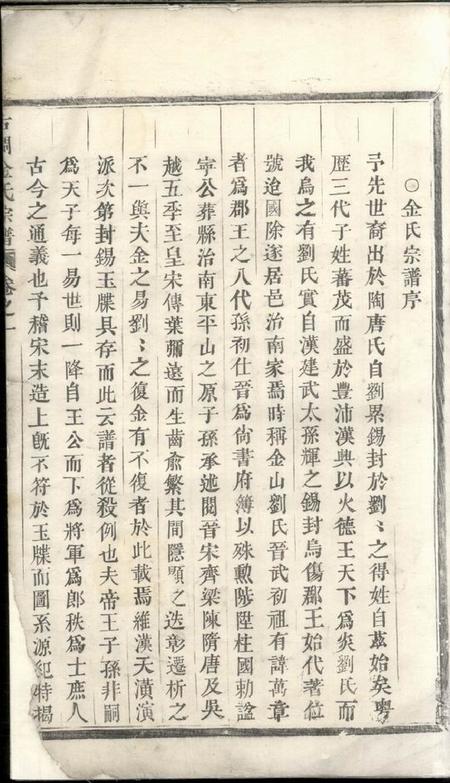 金氏宗譜序
予先世裔出於陶唐氏自劉累錫封於劉〻之得姓自茲始矣粵
歷三代子姓蕃茂而盛於豐沛漢興以火德王天下為炎劉氏而
我烏之有劉氏實自漢建武太孫輝之錫封烏傷郡王始代著位
號迨國除遂居邑治南家焉時稱金山劉氏晉武初祖有諱萬章
者為郡王之八代孫初仕晉為尚書府簿以殊勲陟陞柱國勅諡
寧公葬縣治南東平山之原子孫承述閱晉宋齊梁陳隋唐及吳
越五季至皇宋傳葉彌遠而生齒愈繁其間隱顯之迭彰遷析之
不一與夫金之易劉〻之復金有不復者於此載焉維漢天潢演
派次第封錫玉牒具存而此云譜者從殺例也夫帝王子孫非嗣
為天子每一易世則一降自王公而下為將軍為郎秩為士庶人
古今之通義也予稽宋末造上旣不符於玉牒而圖系源紀特揭
石門金氏宗譜 卷之一